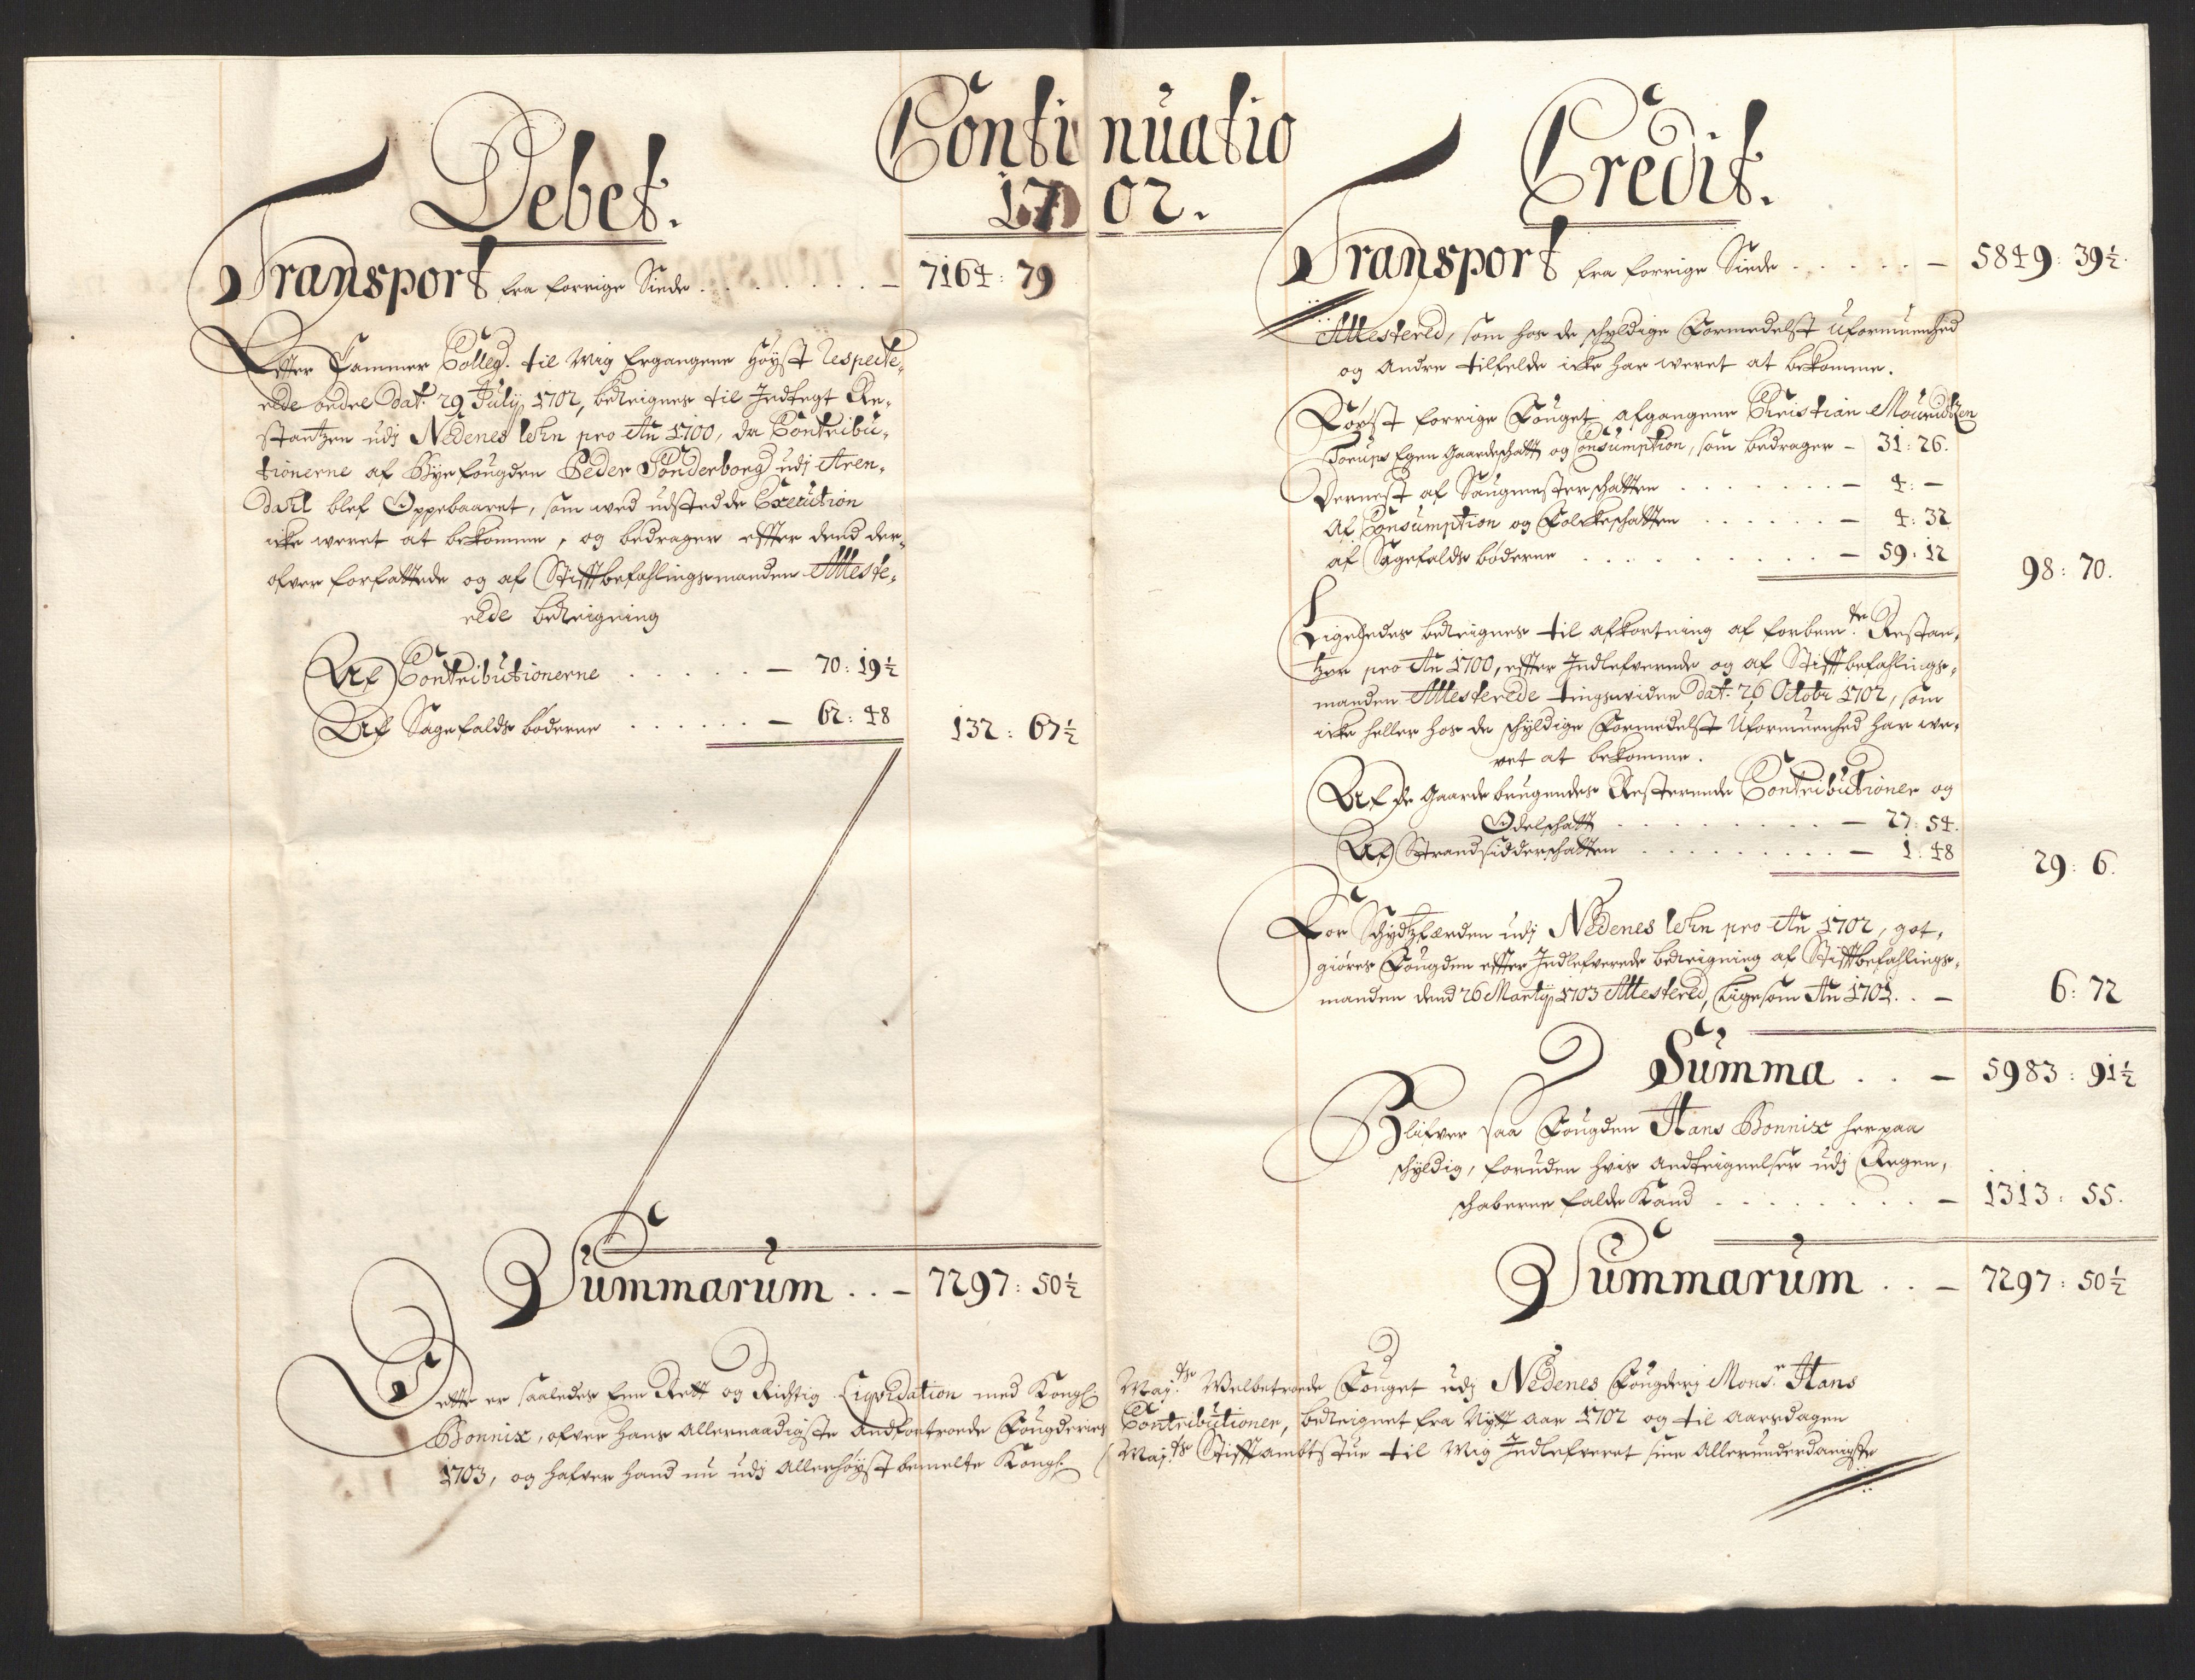 Continuatio
1702.
Debet.
Transport fra forrige Siede . . . . . . . – 7164: 79
Effter Cammer Colleg: til Mig Ergangene Høyst Respecte,
rede ordre Dat: 29 Julij 1702, bereignes til Indtegt Re,
stantzen udj Nedenes lehn pro Ao 1700, da Contribu,
tionerne af Byefougden Peder Sønderborg udj Aren,
dahl blef Oppebaaret, som wed udstedde Execution
icke weret at bekomme, og bedrager effter dend der,
ofver forfattede og af Stifftbefahlingsmanden Atteste,
rede bereigning
Af Contributionerne . . . . . – 70: 19½
Af Sagefalds bøderne . . . . . . – 62: 48
132: 67½
Summarum . . – 7297: 50½
Credit.
Transport fra forrige Siede . . . . . – 5849: 39½.
Attestered, som hos de schyldige Formedelst Uformuenhed
og Andre tilfelde icke har weret at bekomme.
Først forrige Fouget afgangene Christian Mouridtzen
Torups Egen Gaardeschatt og Consumption, som bedrager – 31: 26.
Dernest af Saugmesterschatten . . . . . . – 4: –
Af Consumption og Folckeschatten . . . . . – 4: 32
af Sagefalds bøderne . . . . . . . . – 59: 12
98: 70.
Ligeledes bereignes til afkortning af forbem:te Restan,
tzer pro Ao 1700, effter Indlefverede og af Stifftbefahlings,
manden Attesterede tingswidne Dat: 26 Octobr 1702, som
icke heller hos de schyldige Formedelst Uformuenhed har we,
ret at bekomme.
Af de Gaarde brugendes Resterende Contributioner og
Odelschatt . . . . . . . . – 27: 54.
Af Strandsidderschatten . . . . . . . – 1: 48
29: 6.
For Schydtzfærden udj Nedenes lehn pro Ao 1702, got,
giøres Fougden effter Indlefverede bereigning af Stifftbefahlings,
manden dend 26 Martij 1703 Attestered, Ligesom Ao 1701. . – 6: 72
Summa . . – 5983: 91½
Blifver saa Fougden Hans Bonnix herpaa
schyldig, foruden hvis Andteignelser udj Regen,
schaberne falde Kand . . . . . . . . – 1313: 55.
Summarum . . – 7297: 50½
Dette er saaledes Een Rett og Richtig Liqvidation med Kongl: Maj:ts Welbetroede Fouget udj Nedenes Fougderj Mons:r Hans
Bonnix, ofver hans Allernaadigste Andfortroede Fougderies Contributioner, bereignet fra Nytt Aar 1702 og til Aarsdagen
1703, og hafver hand nu udj Allerhøyst bemelte Kongl: Maj:ts Stifftambtstue til Mig Indlefveret sine Allerunderdanigste